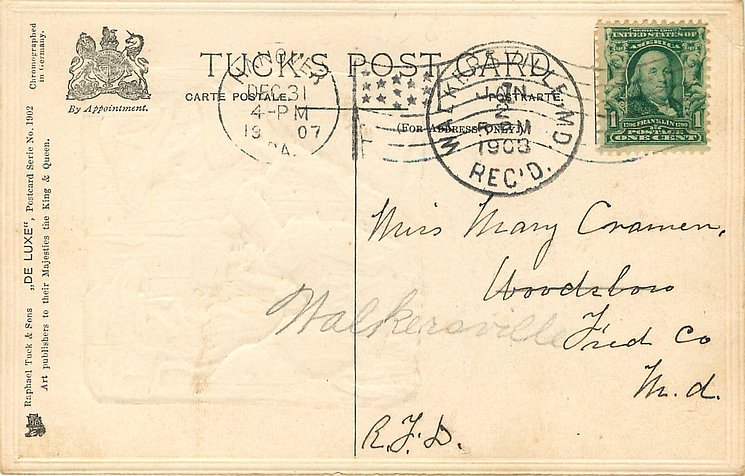 TUCK'S POST CARD
CARTE POSTALE. POSTKARTE.
(FOR ADDRESS ONLY)
By Appointment.
Raphael Tuck & Sons „DE LUXE", Postcard Serie No. 1902
Art publishers to their Majesties the King & Queen.
Chromographed
in Germany.
HANOVER
DEC 31
4-PM
1907
PA.
WALKERSVILLE, MD.
JAN
2
PM
1908
REC'D.
UNITED STATES OF
AMERICA
1 FRANKLIN 1
POSTAGE
ONE CENT
Miss Mary Cramer,
Woodsboro
Walkersville
Fred Co
M.d.
R.F.D.